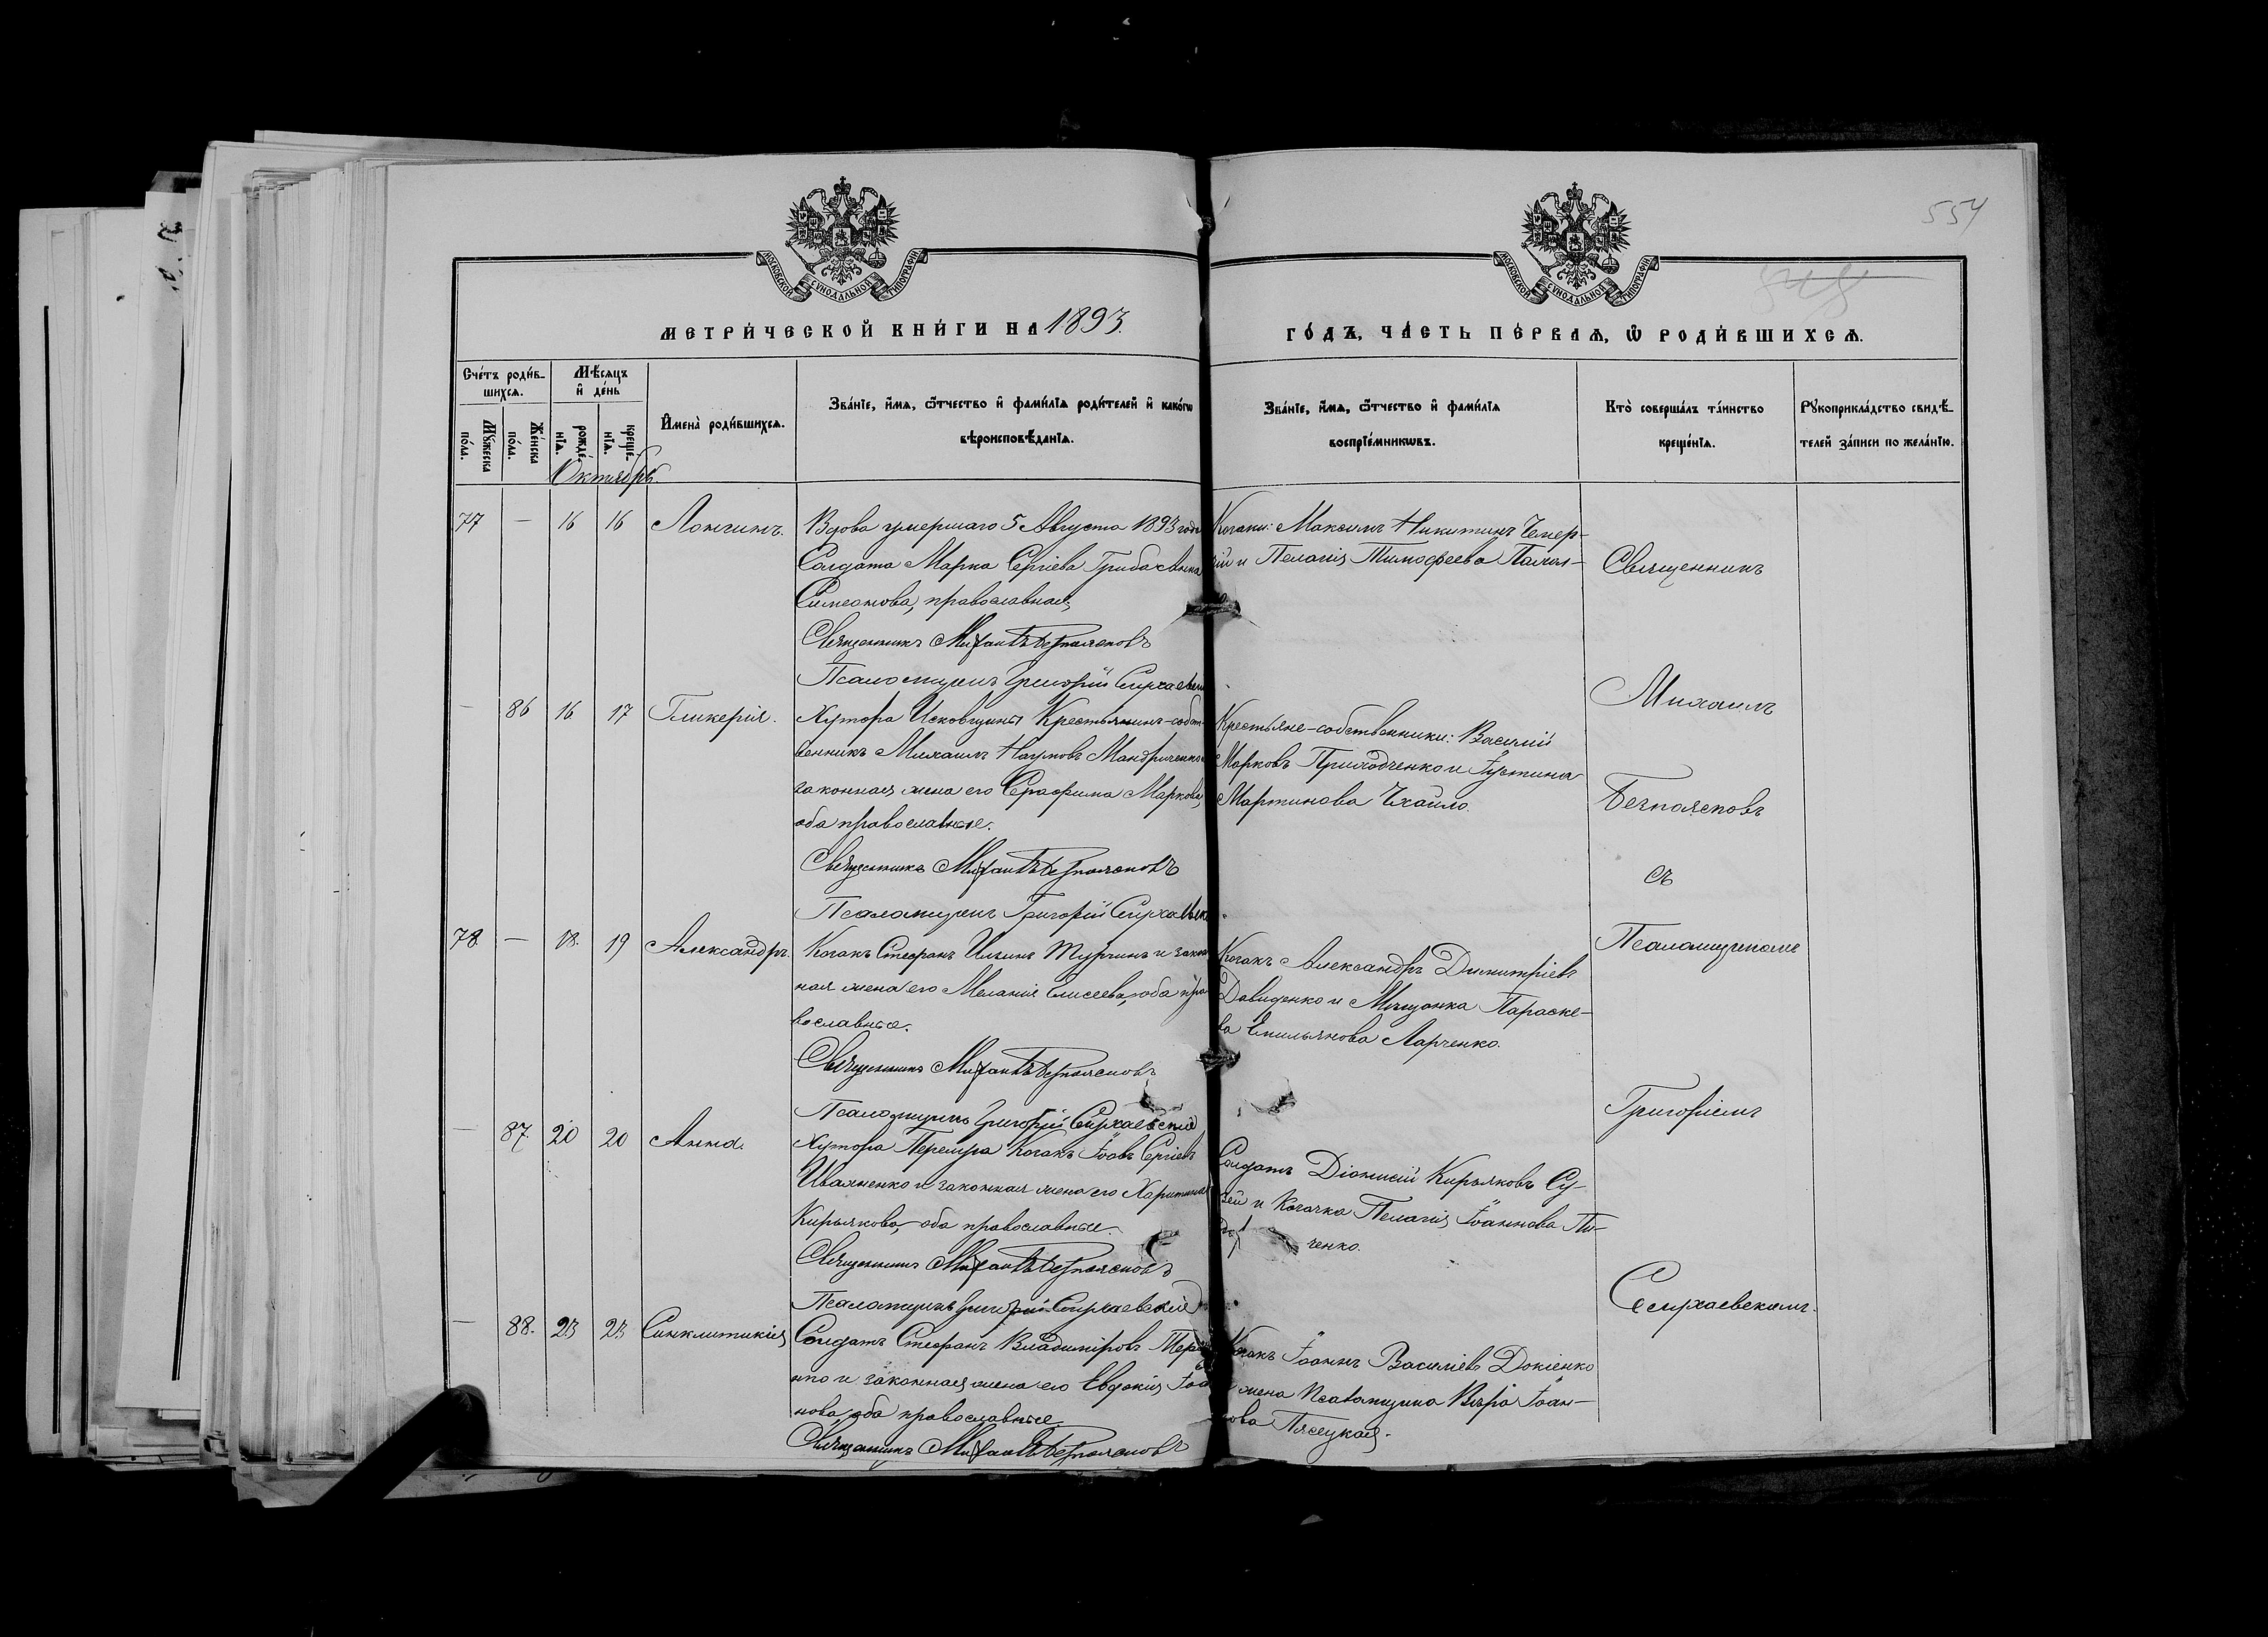 554
МОСКОВСКОЙ СѴНОДАЛЬНОЙ ТИПОГРАФІИ
МОСКОВСКОЙ СѴНОДАЛЬНОЙ ТИПОГРАФІИ
МЕТРИ́ЧЕСКОЙ КНИ́ГИ НА 1893.
ГО́ДЪ, ЧА́СТЬ ПЕ́РВАѦ, Ѽ РОДИ́ВШИХСѦ.
Счéтъ роди́в-
шихсѧ.
Мꙋ́жеска по́ла.
Жéнска по́ла.
Мѣ́сѧцъ и҆ де́нь
рождé-нїѧ.
крещé-нїѧ.
И҆мена̀ роди́вшихсѧ.
Зва́нїе, и҆́мѧ, ѻ҆́тчество и҆ фами́лїѧ роди́телей и҆ како́гѡ
вѣроисповѣ́данїѧ.
Зва́нїе, и҆́мѧ, ѻ҆́тчество и҆ фами́лїѧ
воспрїе́мникѡвъ.
Кто̀ соверша́лъ та́инство
креще́нїѧ.
Рꙋкоприкла́дство свидѣ́-
телей за́писи по жела́нїю.
Октябрь.
77 — 16 16 Лонгинъ.
Вдова умершаго 5 Августа 1893 года
Солдата Марка Сергіева Гриба Анна
Симеонова, православная,
Священникъ Михаилъ Безпояс­ковъ
Псаломщикъ Григорій
Козаки: Максимъ Никитинъ Чемер-
и Пелагія Тимофеева
— 86 16 17 Гликерія.
Хутора Исковщины Крестьянинъ-собст-
венникъ Михаилъ Наумовъ Мандриченко и
законная жена его Серафима Маркова,
оба православные.
Священникъ Михаилъ
Псаломщикъ Григорій
Крестьяне-собственники: Василій
Марковъ Приходченко и Іустина
Мартинова
78 — 18. 19 Александръ.
Козакъ Стефанъ Ильинъ Турчинъ и закон-
ная жена его Меланія Елисеева, оба пра-
вославные.
Священникъ Михаилъ
Псаломщикъ Григорій
Козакъ Александръ Димитріевъ
Давиденко и Мѣщанка Параске-
ва Емильянова Ларченко.
— 87. 20 20 Анна.
Хутора Перелуга Козакъ Іовъ Сергіевъ
Иваненко и законная жена его Харитина
Кирьякова, оба православные.
Священникъ Михаилъ
Псаломщикъ Григорій
Солдатъ Діонисій Кирьяковъ Су-
и Козачка Пелагія Іоаннова
ченко.
— 88. 23 23 Синклитикія
Солдатъ Стефанъ Владиміровъ
и законная жена его Евдокія Іоан-
нова, оба православные.
Священникъ Михаилъ
Козакъ Іоаннъ Василіевъ Докіенко
жена Псаломщика Вѣра Іоан-
нова Пясецкая.
Священникъ
Михаилъ
съ
Псаломщикомъ
Григоріемъ